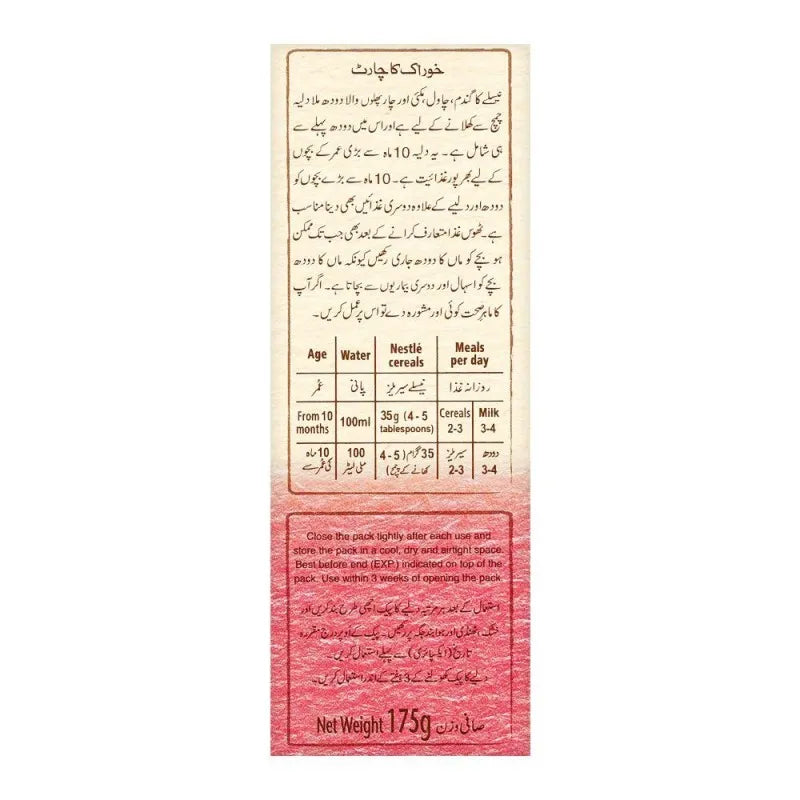 خوراک کا چارٹ
نیسلے کا گندم، چاول، مکئی اور چار پھلوں والا دودھ ملا دلیہ
چمچ سے کھلانے کے لیے ہے اور اس میں دودھ پہلے سے
ہی شامل ہے۔ یہ دلیہ 10 ماہ سے بڑی عمر کے بچوں
کے لیے بھرپور غذائیت ہے۔ 10 ماہ سے بڑے بچوں کو
دودھ اور دلیے کے علاوہ دوسری غذائیں بھی دینا مناسب
ہے۔ ٹھوس غذا متعارف کرانے کے بعد بھی جب تک ممکن
ہو بچے کو ماں کا دودھ جاری رکھیں کیونکہ ماں کا دودھ
بچے کو اسہال اور دوسری بیماریوں سے بچاتا ہے۔ اگر آپ
کا ماہر صحت کوئی اور مشورہ دے تو اس پر عمل کریں۔
Age Water Nestlé cereals Meals per day
عمر پانی نیسلے سیریلز روزانہ غذا
From 10 months 100ml 35g (4 - 5 tablespoons) Cereals 2-3 Milk 3-4
10 ماہ کی عمر سے 100 ملی لیٹر 35 گرام (5 - 4 کھانے کے چمچ) سیریلز 2-3 دودھ 3-4
Close the pack tightly after each use and
store the pack in a cool, dry and airtight space.
Best before end (EXP.) indicated on top of the
pack. Use within 3 weeks of opening the pack
استعمال کے بعد ہر مرتبہ دلیے کا پیک اچھی طرح بند کریں اور
خشک، ٹھنڈی اور ہوا بند جگہ پر رکھیں۔ پیک کے اوپر درج مقررہ
تاریخ (ایکسپائری) سے پہلے استعمال کریں۔
دلیے کا پیک کھولنے کے 3 ہفتے کے اندر استعمال کریں۔
Net Weight 175g صافی وزن